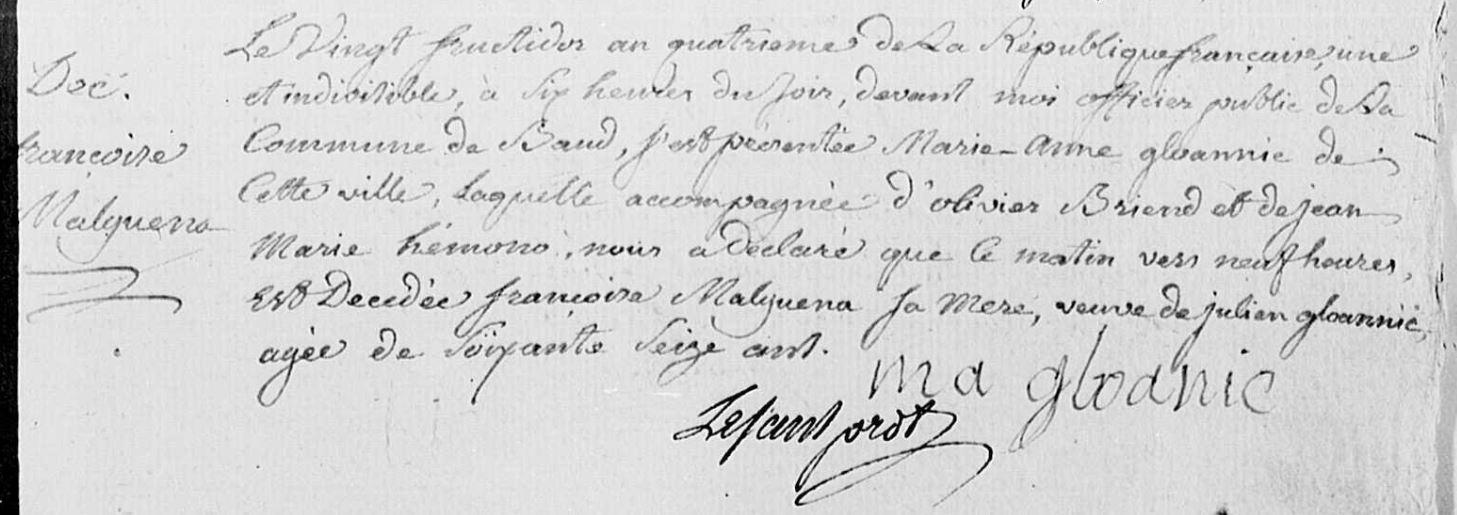 Decé.
françoise
Malguena
Le Vingt fructidor an quatrieme de La République française, une
et indivisible, à Six heures du Soir, devant moi officier public de La
Commune de Baud, s'est présentée Marie-anne gloannic de
Cette ville, Laquelle accompagnée d'olivier Briend et de jean
Marie hémono, nous a Declaré que le matin vers neuf heures,
Est Decedée françoise Malguena Sa Mere, veuve de julien gloannic,
agée de Soixante Seize ans.
ma gloanic